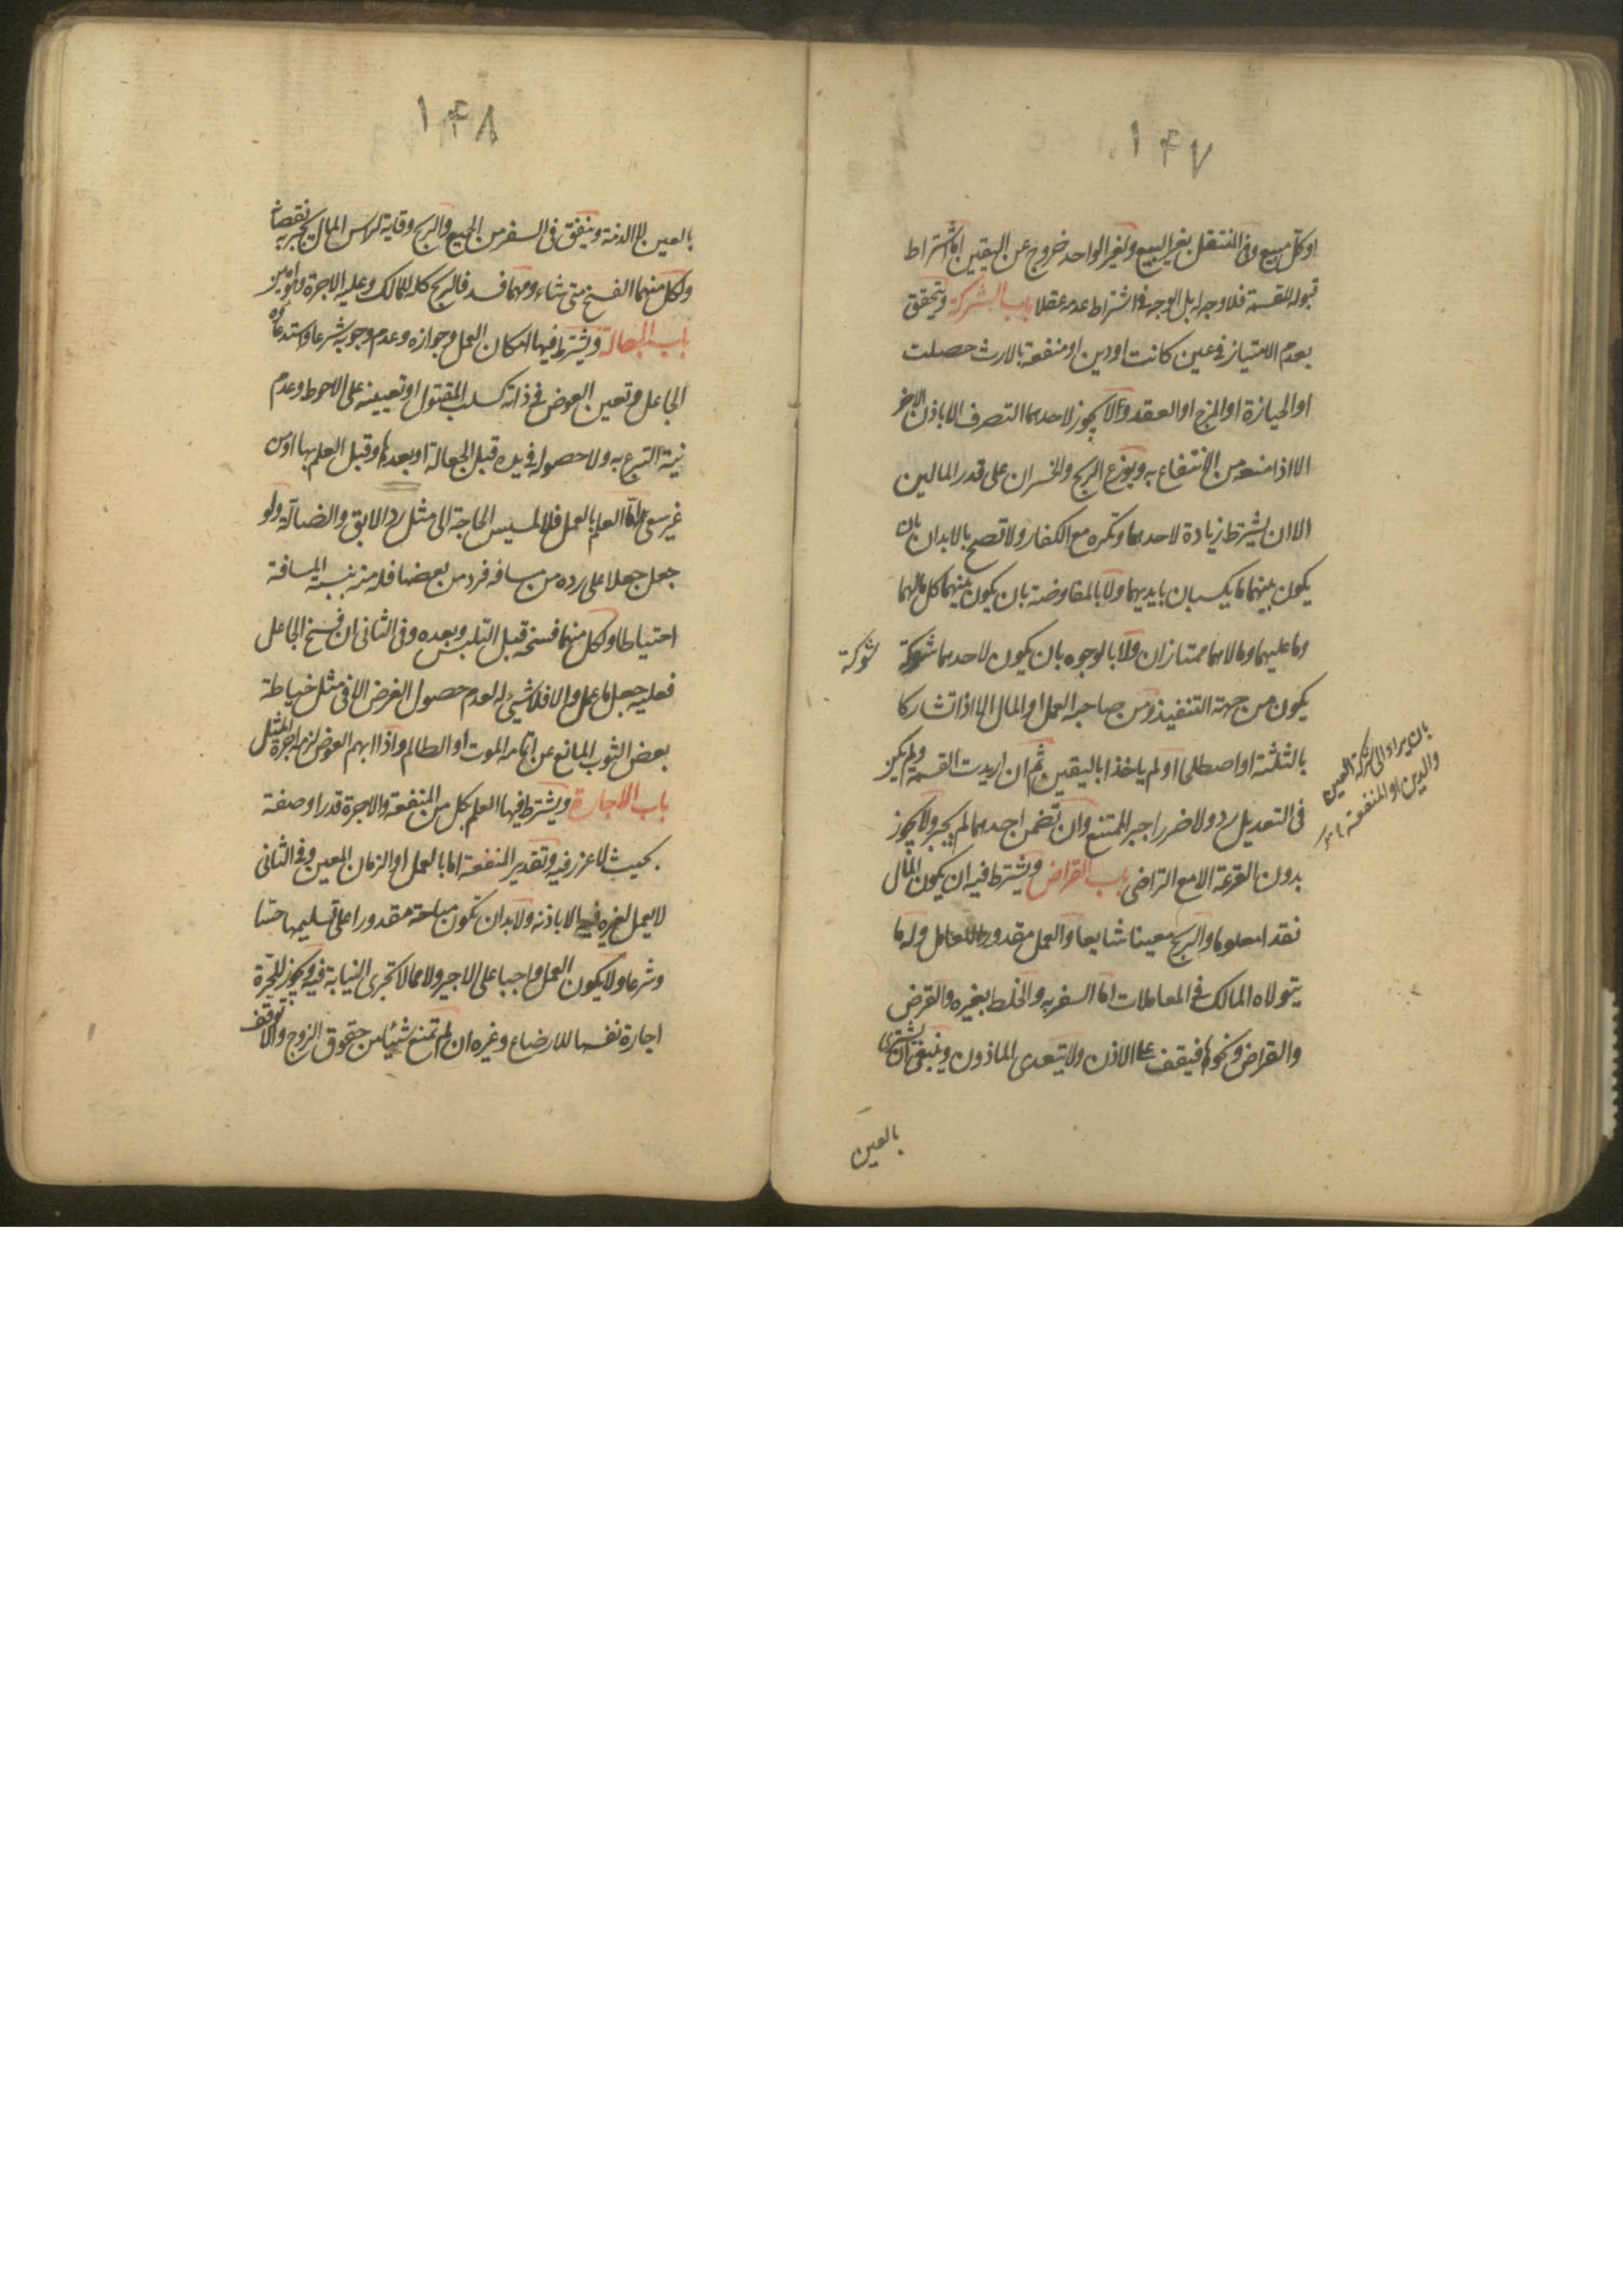 ۱۴۷
او كل مبيع وفى المنتقل بغير البيع ولغير الواحد خروج عن اليقين اما اشتراط
قبوله للقسمة فلا وجه له بل الوجه فى اشتراط عدمه عقلا باب الشركة ويتحقق
بعدم الامتياز فى عين كانت او دين او منفعة بالارث حصلت
او الحيازة او المزج او العقد ولا يجوز لاحدهما التصرف الا باذن الاخر
الا اذا منعه من الانتفاع به ويوزع الربح والخسران على قدر المالين
الا ان يشترط زيادة لاحدهما وتكره مع الكفار ولا تصح بالابدان بان
يكون بينهما ما يكسبان بايديهما ولا بالمفاوضة بان يكون بينهما كل مالهما
وما عليهما ومالاهما ممتازان ولا بالوجوه بان يكون لاحدهما شوكة
شوكة
يكون من جهته التنفيذ ومن صاحبه العمل او المال الا اذا تشاركا
بالثلثة او اصطلحا او لم ياخذا باليقين ثم ان اريدت القسمة ولم يكن
بان يراد الى شركة العين
والدين او المنفعة
فى التعديل رد ولا ضرر اجبر الممتنع وان تضمن احدهما لم يجبر ولا يجوز
بدون القرعة الا مع التراضى باب القراض ويشترط فيه ان يكون المال
نقدا معلوما والربح معينا شايعا والعمل مقدورا للعامل وله ما
يتولاه المالك فى المعاملات اما السفر به والخلط بغيره والقرض
والقراض ونحوها فيقف على الاذن ولا يتعدى الماذون وينبغى ان يشترى
بالعين
۱۴۸
بالعين لا الذمة وينفق فى السفر من الجميع والربح وقاية لراس المال يجبر به نقصانه
ولكل منهما الفسخ متى شاء ومهما فسد فالربح كله للمالك وعليه الاجرة وهو امين
باب الجعالة ويشترط فيها امكان العمل وجوازه وعدم وجوبه شرعا واستدعاؤه
الجاعل وتعين العوض فى ذاته كسلب المقتول او تعيينه على الاحوط وعدم
نية التبرع به ولا حصوله فى يده قبل الجعالة او بعدها وقبل العلم بها او من
غير سعى اما العلم بالعمل فلا لمسيس الحاجة الى مثل رد الابق والضالة ولو
جعل جعلا على رده من مسافة فرد من بعضها فله منه بنسبة المسافة
احتياطا ولكل منهما فسخه قبل التلبس وبعده وفى الثانى ان فسخ الجاعل
فعليه جعل ما عمل والا فلا شىء له لعدم حصول الغرض الا فى مثل خياطة
بعض الثوب المانع عن اتمامه الموت او الظالم واذا ابهم العوض لزم اجرة المثل
باب الاجارة ويشترط فيها العلم بكل من المنفعة والاجرة قدرا وصفة
بحيث لا غرر فيه وتقدير المنفعة اما بالعمل او الزمان المعين وفى الثانى
لا يعمل لغيره فيه الا باذنه ولا بد ان تكون مباحة مقدورا على تسليمها حسا
وشرعا ولا يكون العمل واجبا على الاجير ولا مما لا تجرى النيابة فيه ويجوز للحرة
اجارة نفسها للارضاع وغيره ان لم تمنع شيئا من حقوق الزوج والا توقف